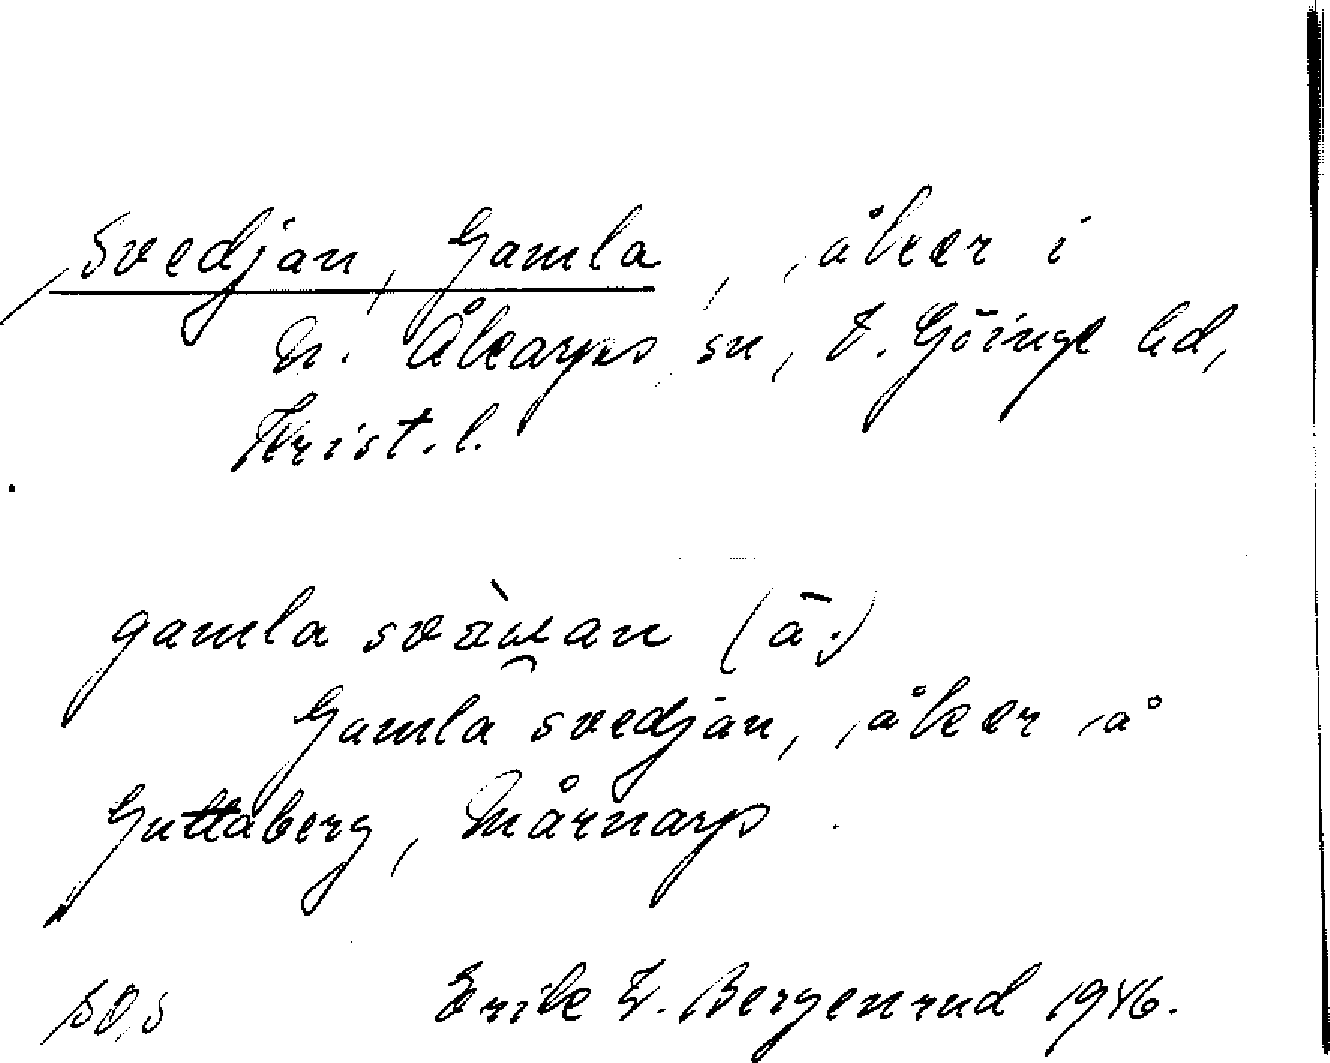 Svedjan, Gamla, åker i
N. Åkarps sn, V. Göinge hd,
Krist. l.
gamla (ā.)
Gamla svedjan, åker å
Guttaberg, Mårnarp
Erik W. Bergenrud 1946.